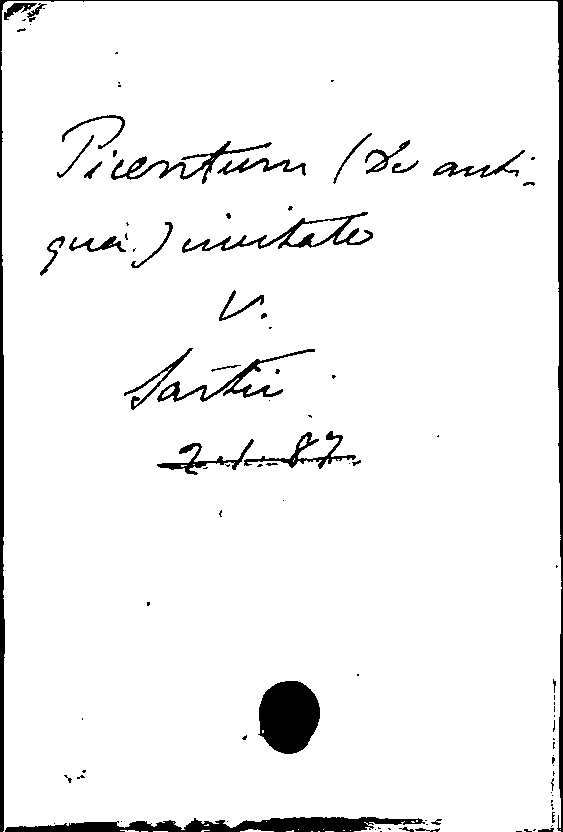 Picentum (De anti-
qua) civitate
V.
Sarti
2.1.87